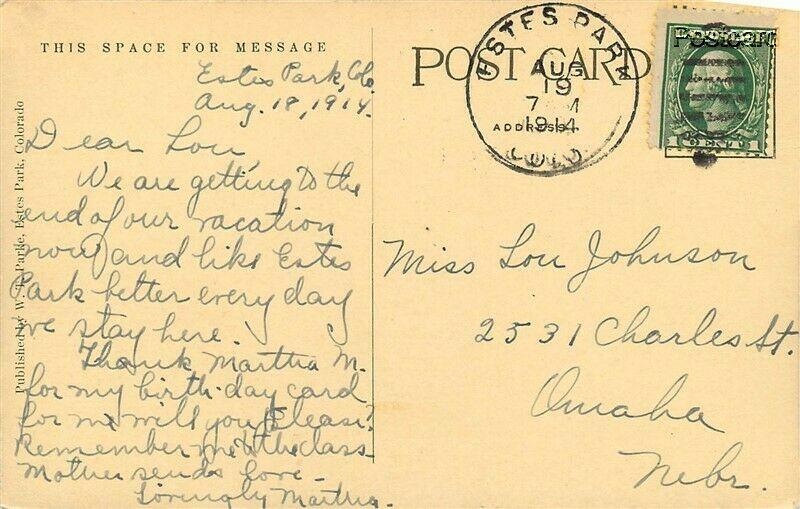 THIS SPACE FOR MESSAGE
Estes Park, Colo
Aug. 18, 1914.
Dear Lou
We are getting to the
end of our vacation
now and like Estes
Park better every day
we stay here.
Thank Martha M.
for my birth-day card
for me will you please?
Remember me to the class
Mother sends love -
Lovingly Martha.
Published by W. T. Parke, Estes Park, Colorado
POST CARD
ADDRESS
ESTES PARK
AUG
19
7 M
1914
COLO
POSTCARD
1 CENT 1
Miss Lou Johnson
2531 Charles St.
Omaha
Nebr.